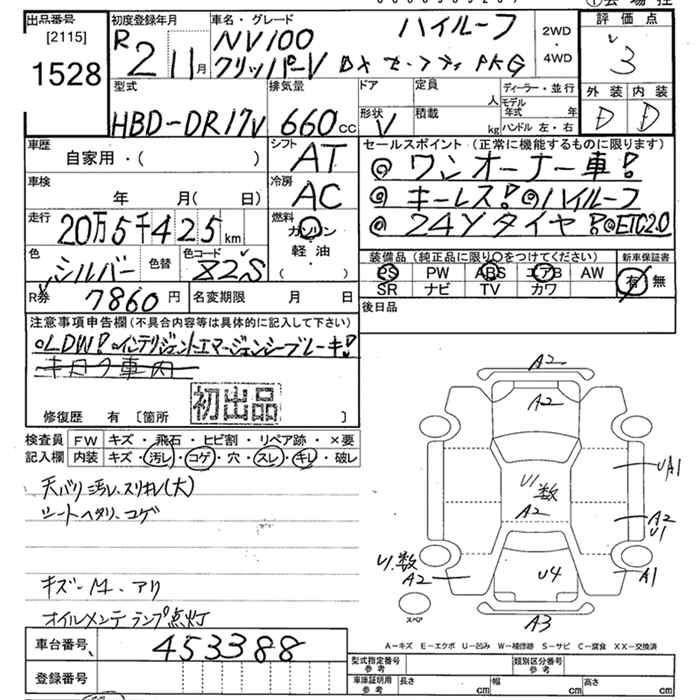 出品番号 初度登録年月 車名・グレード
[2115]
1528
R2 11月 NV100 ハイルーフ
クリッパーV DX セーフティ PKG
2WD
・
4WD
評価点
3
外装 内装
D D
型式 排気量 ドア 定員 人 ディーラー・並行
HBD-DR17V 660cc 形状 V 積載 kg モデル年式 年
ハンドル 左・右
車歴 自家用・( )
シフト AT
セールスポイント (正常に機能するものに限ります)
◎ワンオーナー車!
◎キーレス!◎ハイルーフ
◎24Yタイヤ!◎ETC2.0
車検 年 月( 日)
冷房 AC
走行 20万5千425km
燃料 ガソリン
軽油
( ・ )
色 シルバー 色替 色コード Z2S
装備品 (純正品に限り○をつけてください) 新車保証書
PS PW ABS エアB AW 有・無
SR ナビ TV カワ
R券 7860円 名変期限 月 日
後日品
注意事項申告欄(不具合内容等は具体的に記入して下さい)
◎LDW!◎インテリジェントエマージェンシーブレーキ!
初出品
修復歴 有 [箇所 ]
検査員 FW キズ・飛石・ヒビ割・リペア跡・×要
記入欄 内装 キズ・汚レ・コゲ・穴・スレ・キレ・破レ
天バリ汚レ、スリキレ(大)
シートヘタリ、コゲ
キズ-M. アリ
オイルメンテランプ点灯
A2
A2
UA1
U1数
A2
A2
U1
U1.数
A2
U4
A1
スペア
A3
A-キズ E-エクボ U-凹み W-補修跡 S-サビ C-腐食 XX-交換済
車台番号 453388
登録番号
型式指定番号 参考 類別区分番号 参考
車庫証明用 参考 長さ cm 幅 cm 高さ cm